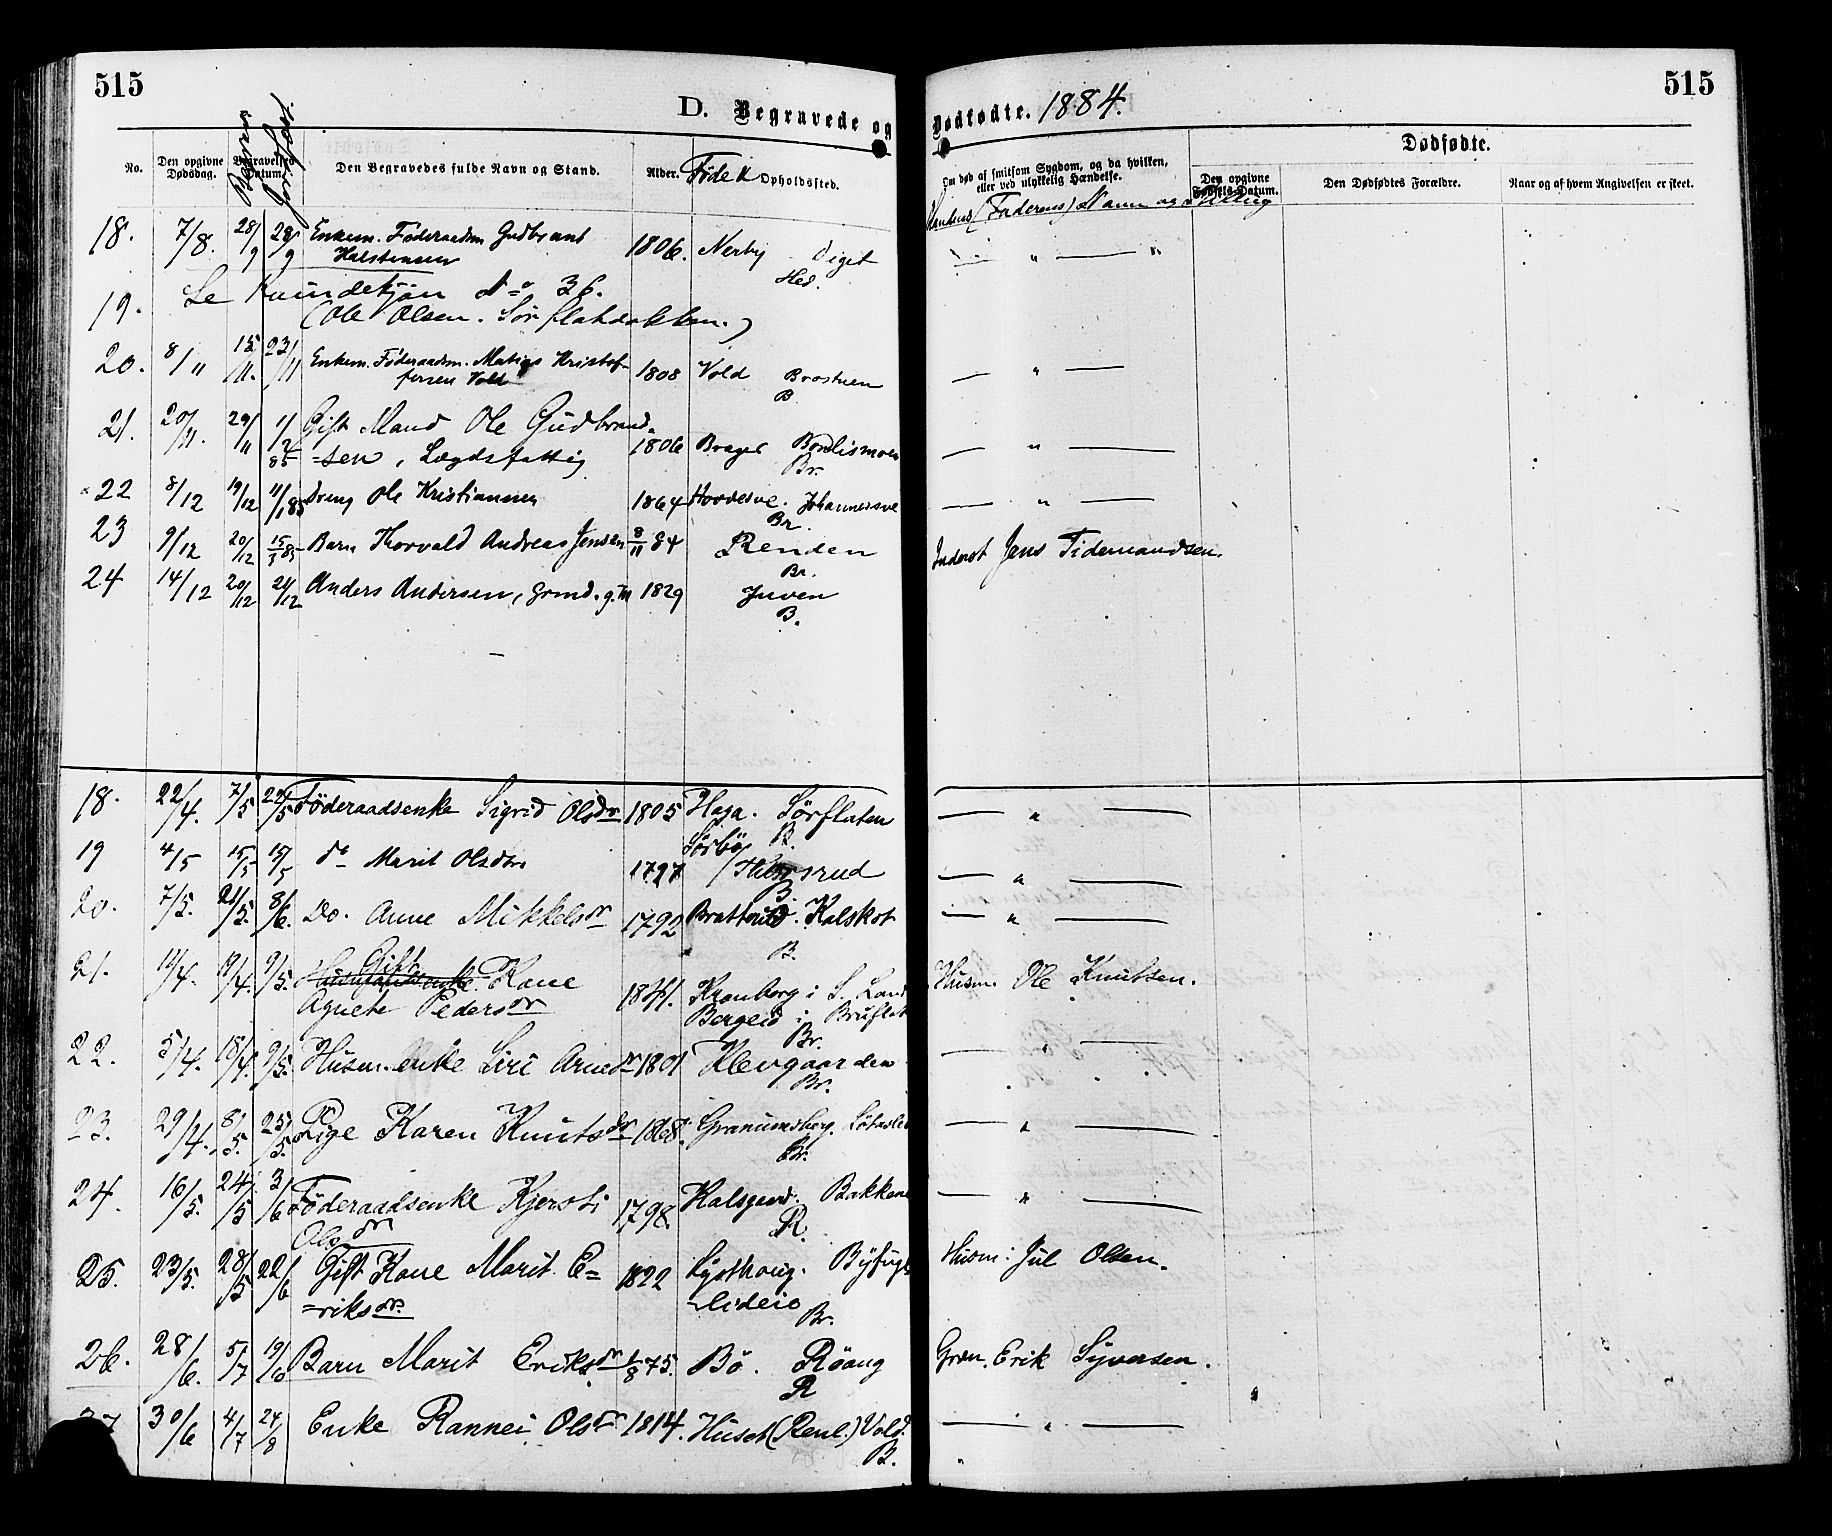 515
515
D. Begravede og Dødfødte. 1884.
No.
Den opgivne Dødsdag.
Begravelses Datum.
Den Begravedes fulde Navn og Stand.
Alder.
Føde
Opholdssted.
Om død af smitsom Sygdom, og da hvilken, eller ved ulykkelig Hændelse.
Mandens (Faderens) Navn og Stilling
Dødfødte.
Den opgivne Fødsels-Datum.
Den Dødfødtes Forældre.
Naar og af hvem Angivelsen er skeet.
18. 7/8. 28/9 28/9 Enkem. Føderaadsm Gudbrand 1806. Nerby Diget — " — "
Halstensen Hed.
19. Se Kvindekjøn No. 36.
(Ole Olsen. Sørflatdokken.)
20. 8/11 15/11. 23/11 Enkem. Føderaadsm. Matias Kristof- 1808 Vold Brostuen — " —
fersen Vold B.
21. 20/11. 29/11 11/2 85 Gift Mand Ole Gudbrand- 1806 Brager — " —
=sen, Lægdsfattig Br.
22 8/12 19/12 11/1 85 Dreng Ole Kristiansen 1864 Johannessve — " —
Br.
23 9/12 20/12 15/3 85 Barn Thorvald Andreas Jensen 8/11 84 Renden Inderst Jens Tidemandsen.
Br.
24 14/12 20/12 21/12 Anders Andersen, Grmd. g. M 1829 Juven
B.
18. 22/4. 7/5 22/5 Føderaadsenke Sigrid Olsdr 1805 Haga. Sørflaten — " —
B.
19 4/5 15/5 15/5 do Marit Olsdr. 1797 Sørbø — " —
B.
20. 7/5. 21/5. 8/6. Do. Anne Mikkelsdr 1792 Kalskot — " —
B.
21. 11/4. 19/4. 9/5. Gift Kone Husm. Ole Knutsen.
Agnete Pedersdr 1841. Kronborg i S. Land
Bergeid i Bruflat
Br.
22. 5/4. 18/4. 9/5. Husm. enke Siri Arnedr 1801 Klevgaarden — " —
Br.
23. 29/4. 8/5. 25/5. Pige Karen Knutsdr 1868. Granumsberg. — " —
Br.
24. 16/5. 24/5 3/6 Føderaadsenke Kjersti 1798. Bakken — " —
Olsdr R.
25. 23/5. 28/5 22/6 Gift Kone Marit E= 1822 Husm: Jul Olsen.
=riksdr. Br.
26. 28/6. 5/7 19/10 Barn Marit Eriksdr 1/8 75. Bø. Røang Grdm. Erik Syversen.
R
27 30/6 4/7 24/8 Enke Rannei Olsdr 1814. Huset (Renl.) Vold. — " —
B.